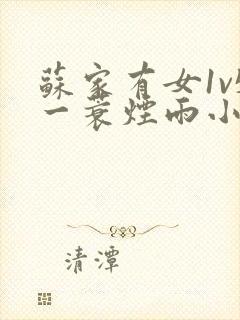 蘇家有女1v
一蓑煙雨小
清潭